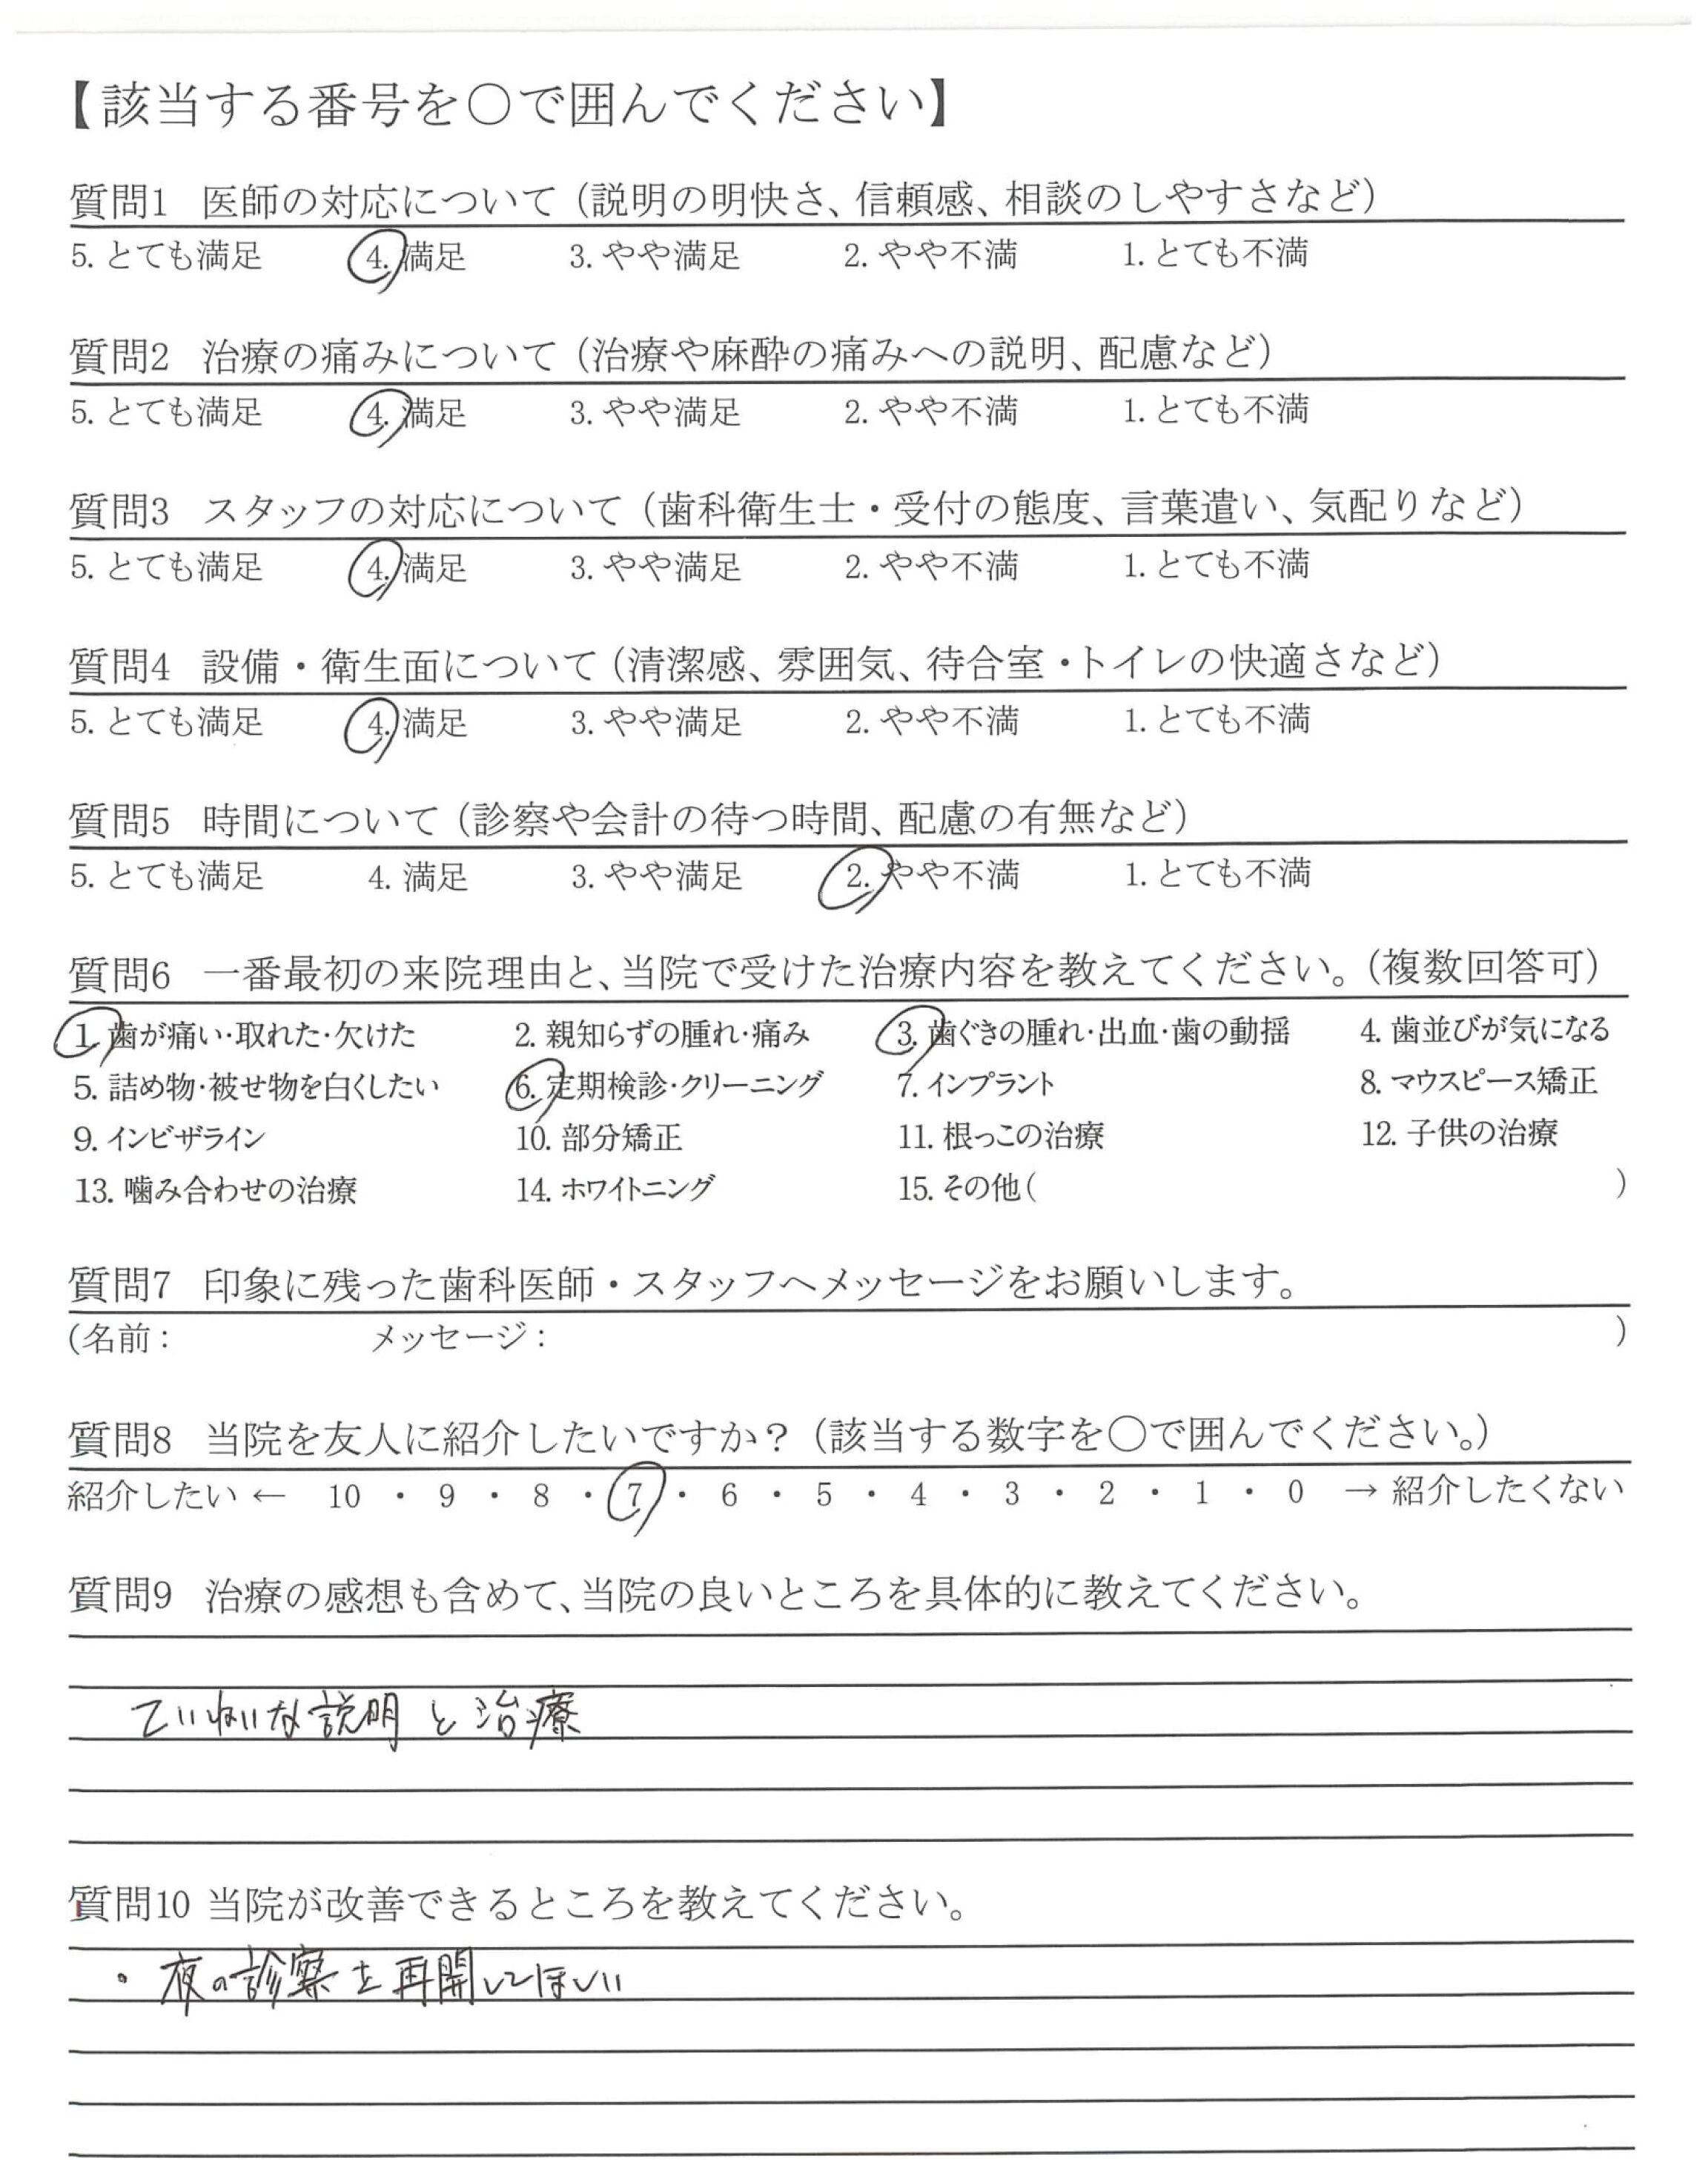 【該当する番号を〇で囲んでください】
質問1 医師の対応について（説明の明快さ、信頼感、相談のしやすさなど）
5. とても満足 4. 満足 3. やや満足 2. やや不満 1. とても不満
質問2 治療の痛みについて（治療や麻酔の痛みへの説明、配慮など）
5. とても満足 4. 満足 3. やや満足 2. やや不満 1. とても不満
質問3 スタッフの対応について（歯科衛生士・受付の態度、言葉遣い、気配りなど）
5. とても満足 4. 満足 3. やや満足 2. やや不満 1. とても不満
質問4 設備・衛生面について（清潔感、雰囲気、待合室・トイレの快適さなど）
5. とても満足 4. 満足 3. やや満足 2. やや不満 1. とても不満
質問5 時間について（診察や会計の待つ時間、配慮の有無など）
5. とても満足 4. 満足 3. やや満足 2. やや不満 1. とても不満
質問6 一番最初の来院理由と、当院で受けた治療内容を教えてください。（複数回答可）
1. 歯が痛い・取れた・欠けた 2. 親知らずの腫れ・痛み 3. 歯ぐきの腫れ・出血・歯の動揺 4. 歯並びが気になる
5. 詰め物・被せ物を白くしたい 6. 定期検診・クリーニング 7. インプラント 8. マウスピース矯正
9. インビザライン 10. 部分矯正 11. 根っこの治療 12. 子供の治療
13. 噛み合わせの治療 14. ホワイトニング 15. その他（ ）
質問7 印象に残った歯科医師・スタッフへメッセージをお願いします。
（名前： メッセージ： ）
質問8 当院を友人に紹介したいですか？（該当する数字を〇で囲んでください。）
紹介したい ← 10 ・ 9 ・ 8 ・ 7 ・ 6 ・ 5 ・ 4 ・ 3 ・ 2 ・ 1 ・ 0 → 紹介したくない
質問9 治療の感想も含めて、当院の良いところを具体的に教えてください。
ていねいな説明と治療
質問10 当院が改善できるところを教えてください。
・夜の診察を再開してほしい